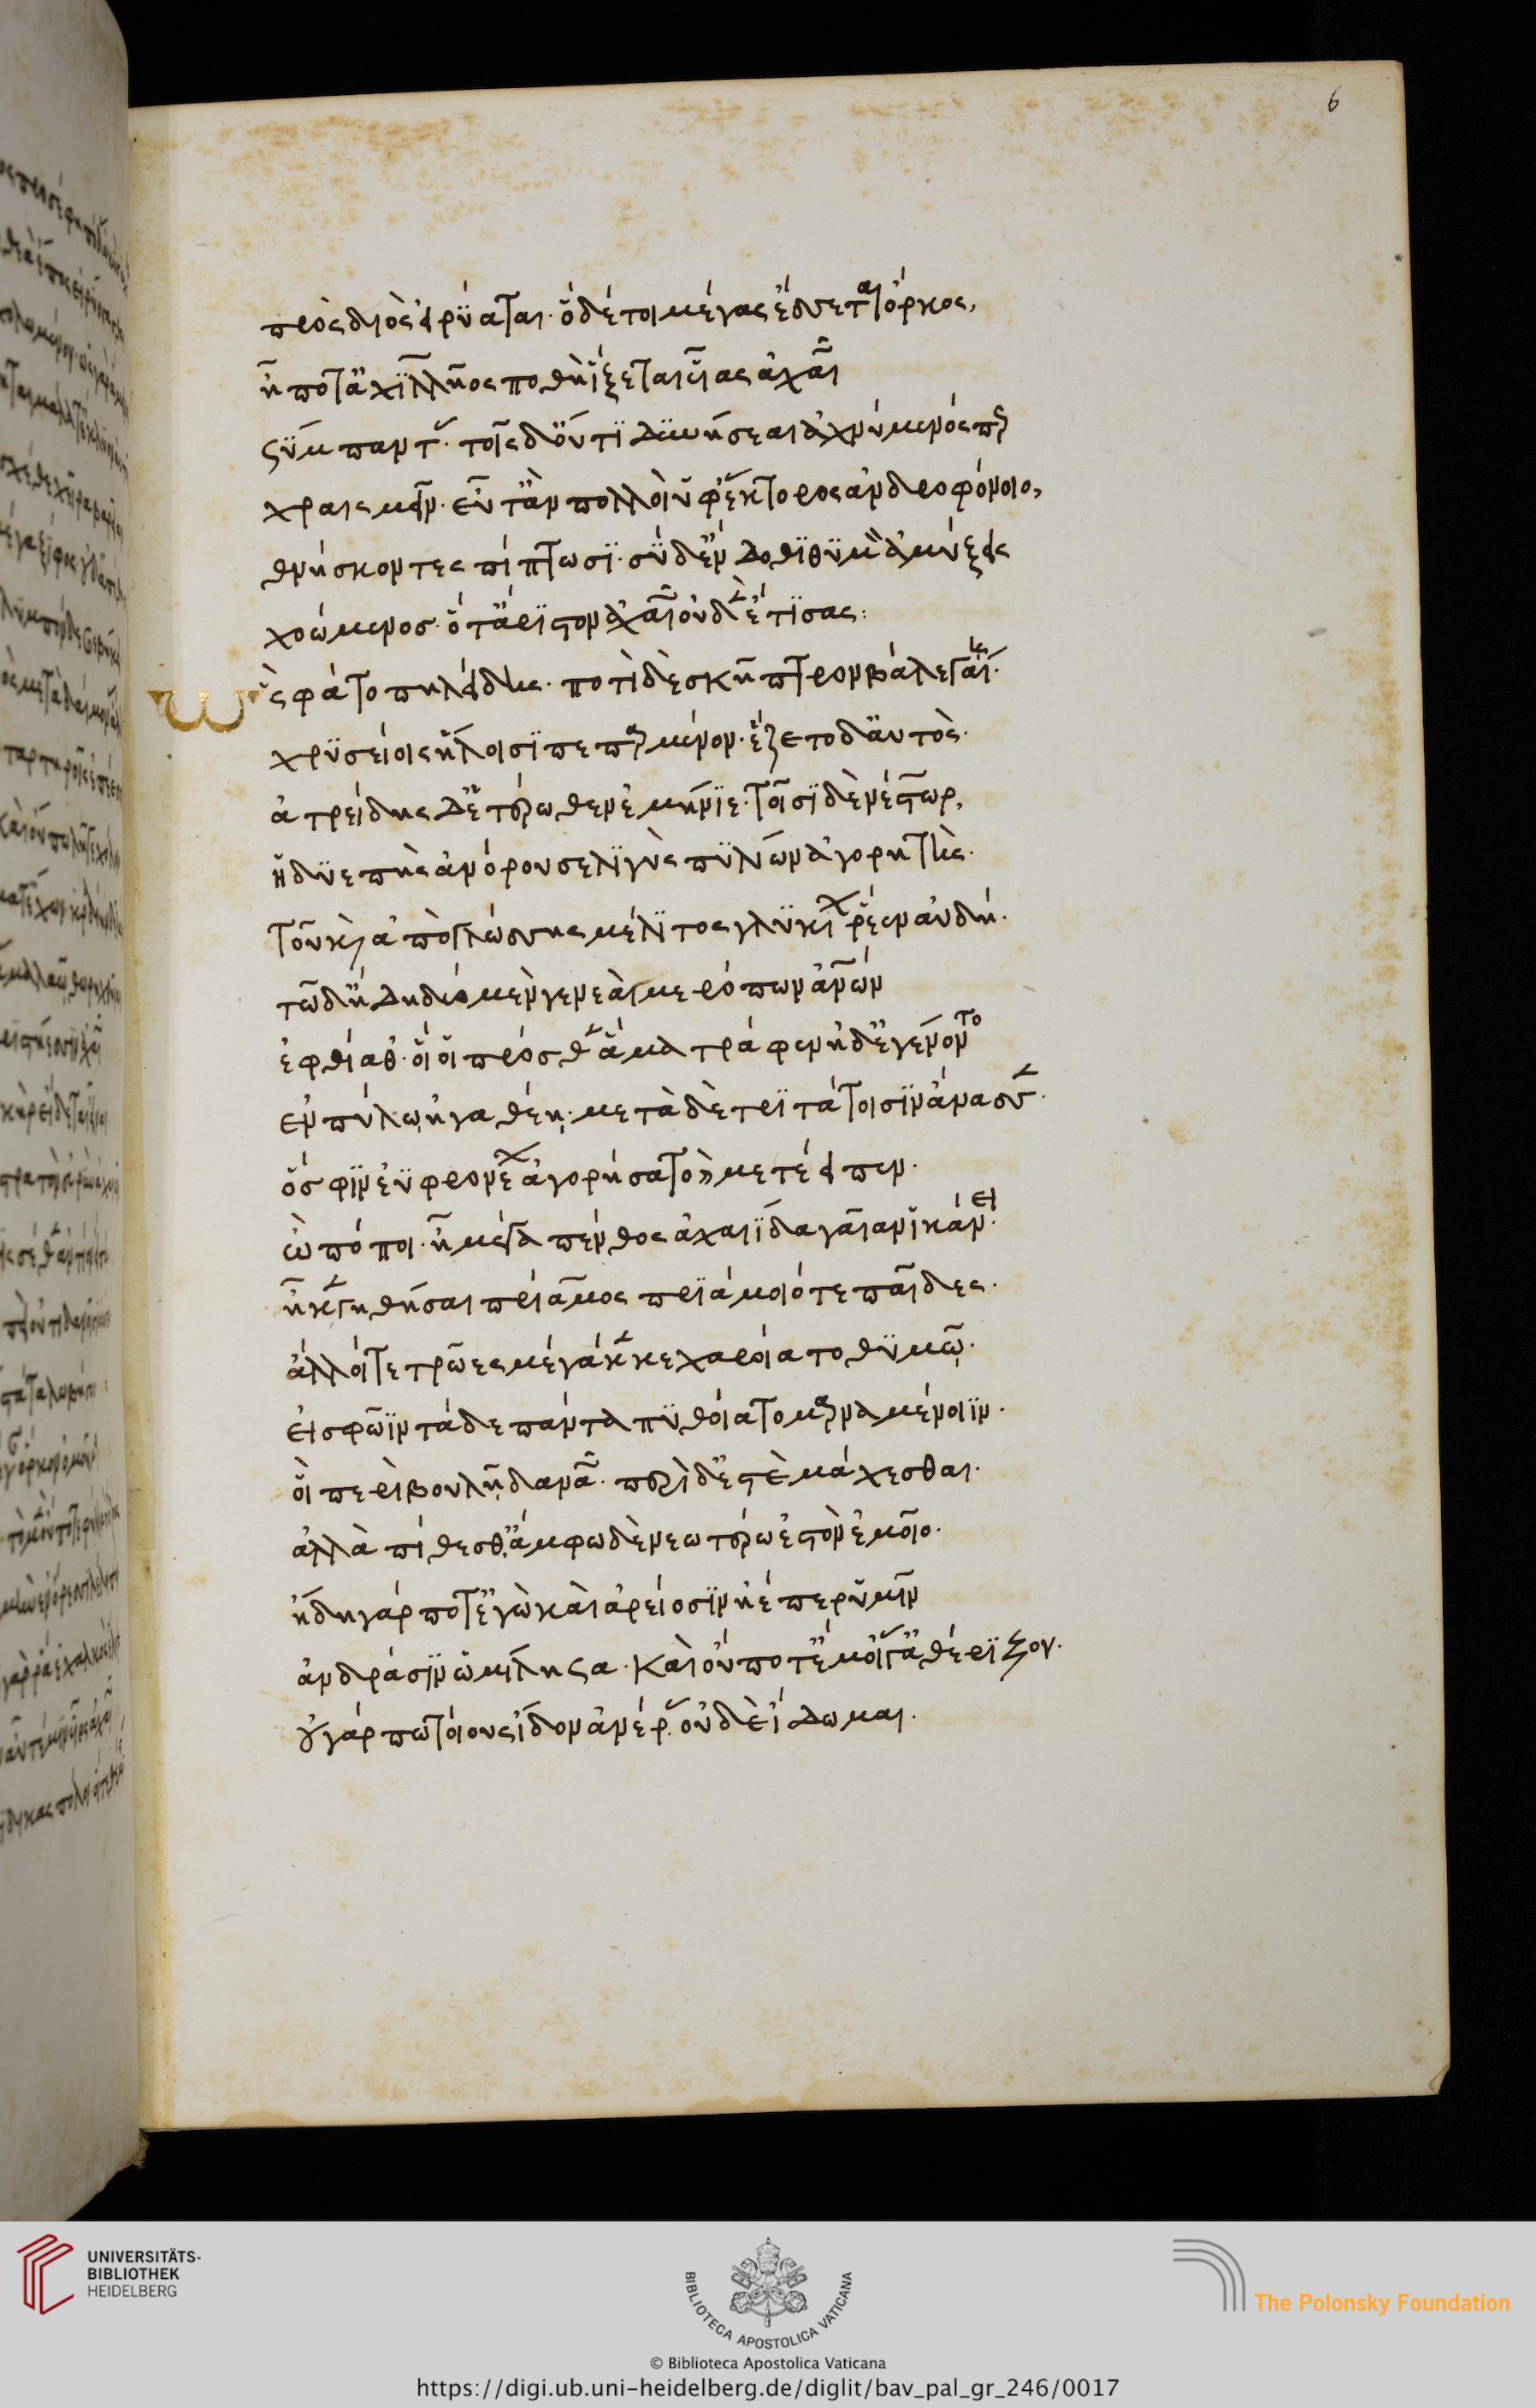 6
πρὸς διὸς εἰρύαται· ὁ δέ τοι μέγας ἔσσεται ὅρκος,
ἦ ποτ' ἀχιλλῆος ποθὴ ἵξεται υἷας ἀχαιῶν
σύμπαντας· τοῖς δ' οὔντι δυνήσεαι ἀχνύμενός περ
χραισμεῖν· εὖτ' ἂν πολλοὶ ὑφ' ἕκτορος ἀνδροφόνοιο,
θνήσκοντες πίπτωσι· σὺ δ' ἔνδοθι θυμὸν ἀμύξεις
χωόμενος· ὅτ' ἄριστον ἀχαιῶν οὐδὲν ἔτισας:
Ὣς φάτο πηλείδης· ποτὶ δὲ σκῆπτρον βάλε γαίῃ·
χρυσείοις ἥλοισι πεπαρμένον· ἕζετο δ' αὐτὸς·
ἀτρείδης δ' ἑτέρωθεν ἐμήνιε· τοῖσι δὲ νέστωρ,
ἡδυεπὴς ἀνόρουσε λιγὺς πυλίων ἀγορητὴς·
τοῦ καὶ ἀπὸ γλώσσης μέλιτος γλυκίων ῥέεν αὐδή·
τῶ δ' ἤδη δύο μὲν γενεαὶ μερόπων ἀνθρώπων
ἐφθίαθ'· οἵ οἱ πρόσθεν ἅμα τράφεν ἠδ' ἐγένοντο
ἐν πύλω ἠγαθέη· μετὰ δὲ τριτάτοισιν ἄνασσεν·
ὅ σφιν ἐϋφρονέων ἀγορήσατο καὶ μετέειπεν·
ὢ πόποι· ἦ μέγα πένθος ἀχαιΐδα γαῖαν ἱκάνει·
ἦ κεν γηθήσαι πρίαμος πριάμοιό τε παῖδες·
ἄλλοι τε τρῶες μέγα κεν κεχαροίατο θυμῶ·
εἰ σφῶϊν τάδε πάντα πυθοίατο μαρναμένοιιν·
οἳ περὶ βουλὴν δαναῶν· περὶ δ' ἐστὲ μάχεσθαι·
ἀλλὰ πίθεσθ'· ἄμφω δὲ νεωτέρω ἐστὸν ἐμοῖο·
ἤδη γάρ ποτ' ἐγὼ καὶ ἀρείοσιν ἠέπερ ὑμῖν
ἀνδράσιν ὡμίλησα· καὶ οὔποτέ μ' οἵγ' ἀθέριζον·
οὐ γάρ πω τοίους ἴδον ἀνέρας· οὐδὲ ἴδωμαι·
UNIVERSITÄTS-
BIBLIOTHEK
HEIDELBERG
BIBLIOTECA APOSTOLICA VATICANA
The Polonsky Foundation
© Biblioteca Apostolica Vaticana
https://digi.ub.uni-heidelberg.de/diglit/bav_pal_gr_246/0017